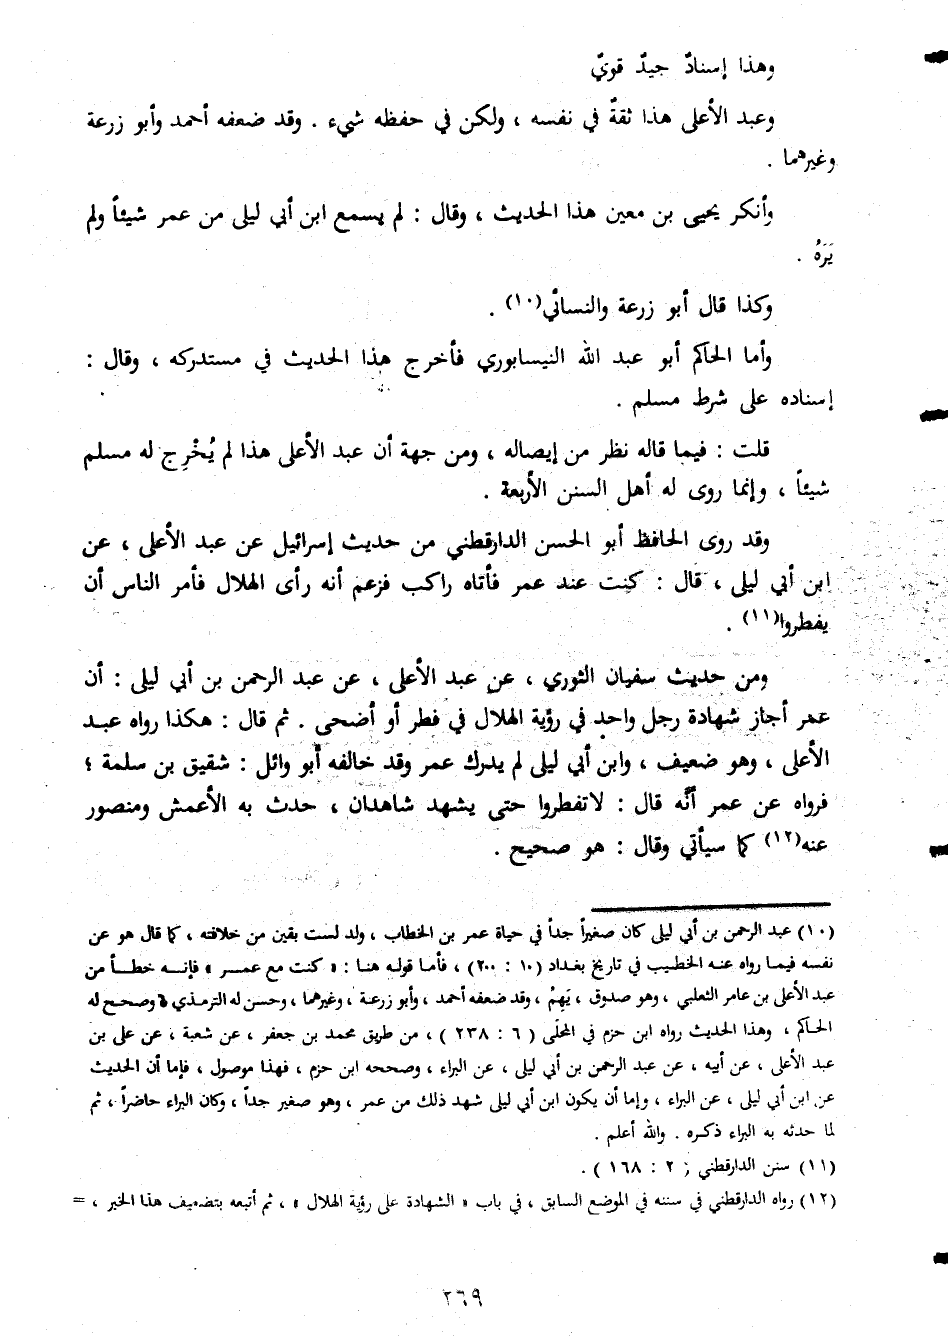 وهذا إسنادٌ جيدٌ قويّ
وعبد الأعلى هذا ثقةٌ في نفسه ، ولكن في حفظه شيء . وقد ضعفه أحمد وأبو زرعة
وغيرهما .
وأنكر يحيى بن معين هذا الحديث ، وقال : لم يسمع ابن أبي ليلى من عمر شيئاً ولم
يَرَهُ .
وكذا قال أبو زرعة والنسائي(١٠) .
وأما الحاكم أبو عبد الله النيسابوري فأخرج هذا الحديث في مستدركه ، وقال :
إسناده على شرط مسلم .
قلت : فيما قاله نظر من إيصاله ، ومن جهة أن عبد الأعلى هذا لم يُخْرِج له مسلم
شيئاً ، وإنما روى له أهل السنن الأربعة .
وقد روى الحافظ أبو الحسن الدارقطني من حديث إسرائيل عن عبد الأعلى ، عن
ابن أبي ليلى ، قال : كنت عند عمر فأتاه راكب فزعم أنه رأى الهلال فأمر الناس أن
يفطروا(١١) .
ومن حديث سفيان الثوري ، عن عبد الأعلى ، عن عبد الرحمن بن أبي ليلى : أن
عمر أجاز شهادة رجل واحد في رؤية الهلال في فطر أو أضحى . ثم قال : هكذا رواه عبد
الأعلى ، وهو ضعيف ، وابن أبي ليلى لم يدرك عمر وقد خالفه أبو وائل : شقيق بن سلمة ؛
فرواه عن عمر أنَّه قال : لاتفطروا حتى يشهد شاهدان ، حدث به الأعمش ومنصور
عنه(١٢) كما سيأتي وقال : هو صحيح .
(١٠) عبد الرحمن بن أبي ليلى كان صغيراً جداً في حياة عمر بن الخطاب ، ولد لست بقين من خلافته ، كما قال هو عن
نفسه فيما رواه عنه الخطيب في تاريخ بغداد (١٠ : ٢٠٠) ، فأما قوله هنا : « كنت مع عمر » فإنه خطأ من
عبد الأعلى بن عامر الثعلبي ، وهو صدوق ، يَهِمُ ، وقد ضعفه أحمد ، وأبو زرعة ، وغيرهما ، وحسن له الترمذي ، وصحح له
الحاكم ، وهذا الحديث رواه ابن حزم في المحلّى ( ٦ : ٢٣٨ ) ، من طريق محمد بن جعفر ، عن شعبة ، عن علي بن
عبد الأعلى ، عن أبيه ، عن عبد الرحمن بن أبي ليلى ، عن البراء ، وصححه ابن حزم ، فهذا موصول ، فإما أن الحديث
عن ابن أبي ليلى ، عن البراء ، وإما أن يكون ابن أبي ليلى شهد ذلك من عمر ، وهو صغير جداً ، وكان البراء حاضراً ، ثم
لما حدثه به البراء ذكره . والله أعلم .
(١١) سنن الدارقطني ; ٢ : ١٦٨ ) .
(١٢) رواه الدارقطني في سننه في الموضع السابق ، في باب « الشهادة على رؤية الهلال » ، ثم أتبعه بتضعيف هذا الخبر ، =
٢٦٩